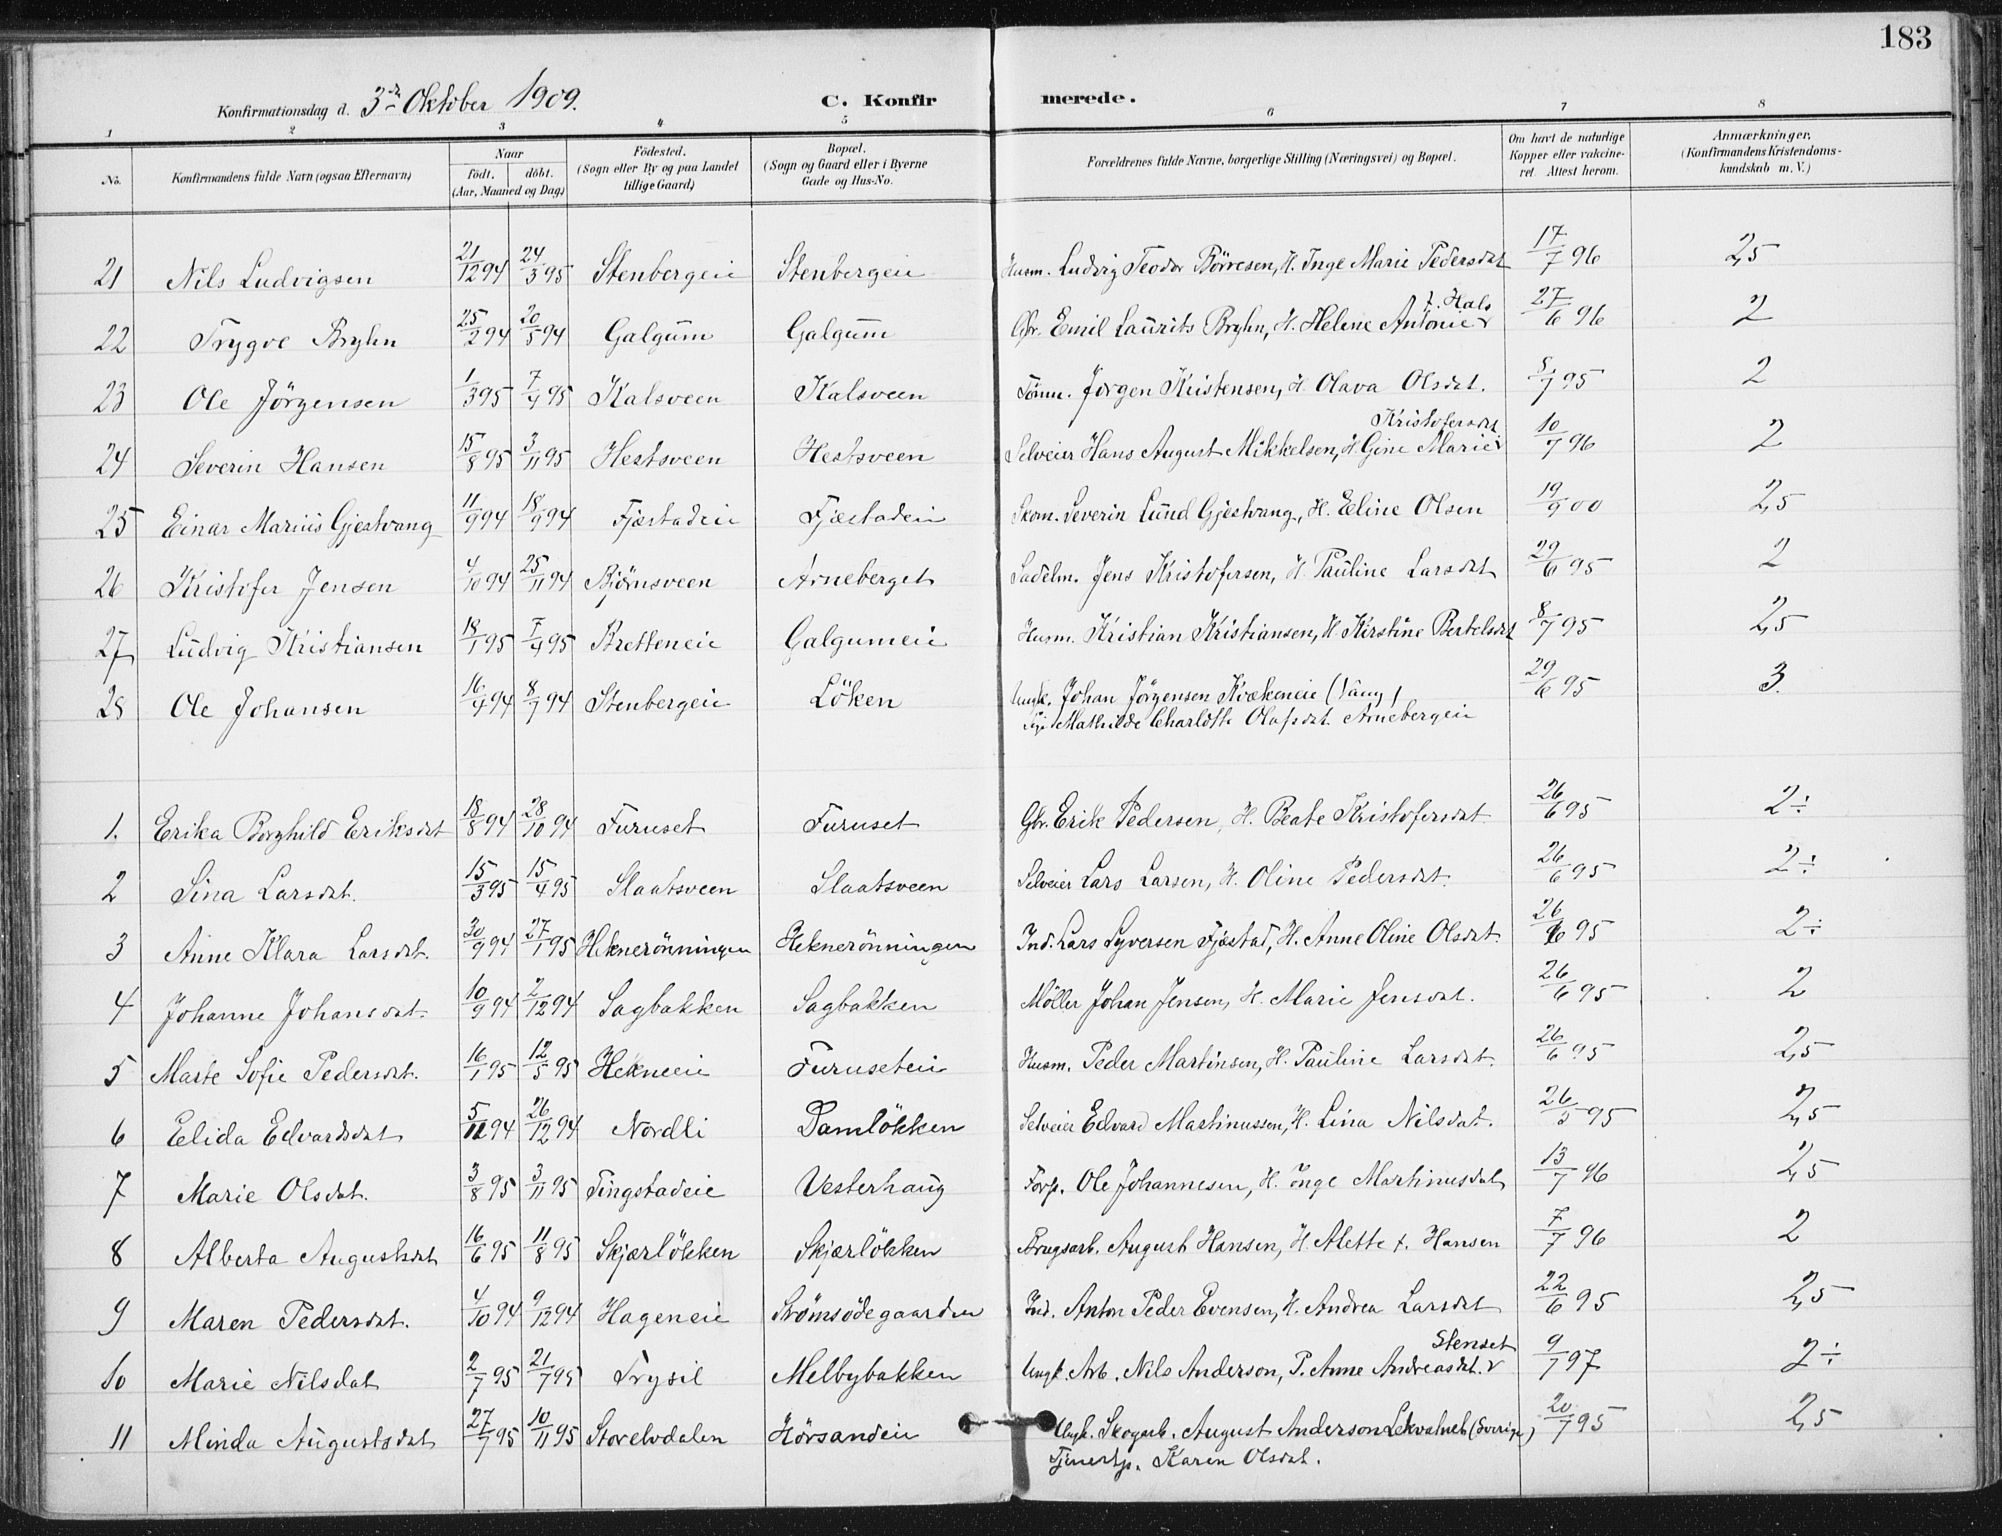 183
Konfirmationsdag d. 3die Oktober 1909. C. Konfirmerede.
1 2 3 4 5 6 7 8
No. Konfirmandens fulde Navn (ogsaa Efternavn) Naar født. døbt. (Aar, Maaned og Dag) Fødested. (Sogn eller By og paa Landet tillige Gaard) Bopæl. (Sogn og Gaard eller i Byerne Gade og Hus-No. Forældrenes fulde Navne, borgerlige Stilling (Næringsvei) og Bopæl. Om havt de naturlige Kopper eller vakcineret. Attest herom. Anmærkninger. (Konfirmandens Kristendomskundskab m. V.)
21 Nils Ludvigsen 21/12 94 24/3 95 Stenbergeie Stenbergeie Husm. Ludvig Teodor Börresen, H. Inge Marie Pedersdat 17/7 96 2,5
22 Trygve Bryhn 25/2 94 20/5 94 Galgum Galgum Gbr. Emil Laurits Bryhn, H. Helene Antonie f. Hals 27/6 96 2
23 Ole Jörgensen 1/3 95 7/4 95 Kalsveen Kalsveen Tömm. Jörgen Kristensen, H. Olava Olsdat. 5/7 95 2
24 Severin Hansen 15/8 95 3/11 95 Hestsveen Hestsveen Selveier Hans August Mikkelsen, H. Gine Marie Kristofersdat 10/7 96 2
25 Einar Marius Gjestvang 11/9 94 18/9 94 Fjæstadeie Fjæstadeie Skom. Severin Lund Gjestvang, H. Eline Olsen 19/9 00 2,5
26 Kristofer Jensen 4/10 94 25/11 94 Björnsveen Arneberget Sadelm. Jens Kristofersen, H. Pauline Larsdat 29/6 95 2
27 Ludvig Kristiansen 18/1 95 7/4 95 Bretteneie Galgumeie Husm. Kristian Kristiansen, H. Kirstine Bertelsdat 8/7 95 2,5
28 Ole Johansen 16/4 94 8/7 94 Stenbergeie Löken Ungk. Johan Jörgensen Kvækeneie (Vang) 29/6 95 3.
Pige Mathilde Charlotte Olafsdat. Arnebergeie
1. Erika Borghild Eriksdat 18/8 94 28/10 94 Furuset Furuset Gbr. Erik Pedersen, H. Beate Kristofersdat. 26/6 95 2÷
2 Sina Larsdat. 15/3 95 15/4 95 Slaatsveen Slaatsveen Selveier Lars Larsen, H. Oline Pedersdat. 26/6 95 2÷
3 Anne Klara Larsdat. 30/9 94 27/1 95 Heknerönningen Heknerönningen Ind. Lars Syversen Fjæstad, H. Anne Oline Olsdat. 26/6 95 2÷
4 Johanne Johansdat. 10/9 94 2/12 94 Sagbakken Sagbakken Möller Johan Jensen, H. Marie Jensdat. 26/6 95 2
5 Marte Sofie Pedersdat. 16/1 95 12/5 95 Hekneeie Furuseteie Husm. Peder Martinsen, H. Pauline Larsdat. 26/6 95 2,5
6 Elida Edvardsdat 5/11 94 26/12 94 Nordli Damlökken Selveier Edvard Martinussen, H. Lina Nilsdat. 26/5 95 2,5
7 Marie Olsdat. 3/8 95 3/11 95 Tingstadeie Vesterhaug Forp. Ole Johannesen, H. Inge Martinusdat 13/7 96 2,5
8 Alberta Augustsdat 16/6 95 11/8 95 Skjærlökken Skjærlökken Brugsarb. August Hansen, H. Alette f. Hansen 7/7 96 2
9 Maren Pedersdat. 4/10 94 9/12 94 Hageneie Strömsödegaarden Ind. Anton Peder Evensen, H. Andrea Larsdat 22/6 95 2,5
10 Marie Nilsdat 2/7 95 21/7 95 Trysil Melbybakken Ungk. Arb. Nils Anderson, P. Anne Andreasdat. Stenset 9/7 97 2÷
11 Minda Augustsdat 27/7 95 10/11 95 Storelvdalen Hörsandeie Ungk. Skogarb. August Anderson Lekvatnet (Sverige) 20/7 95 2,5
Tjenestp. Karen Olsdat.